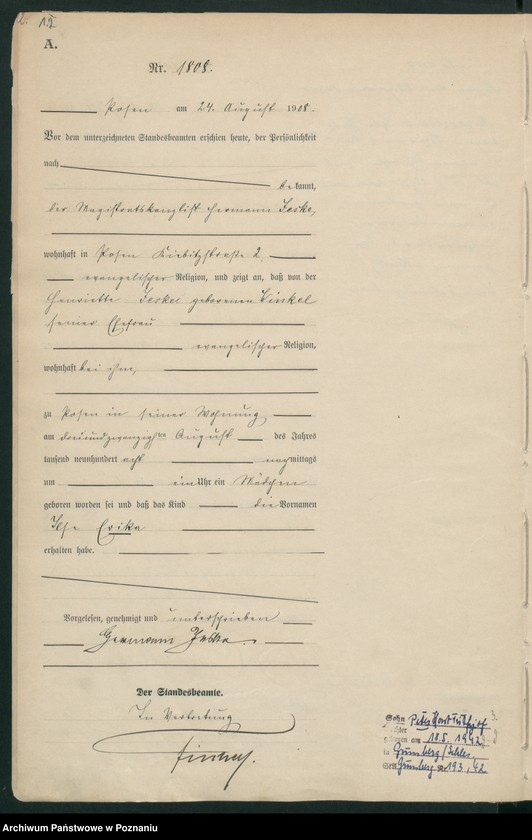 12
A.
Nr. 1808.
Posen am 24. August 1908.
Vor dem unterzeichneten Standesbeamten erschien heute, der Persönlichkeit
nach
bekannt,
der Magistratskanzlist Hermann Jeske,
wohnhaft in Posen Kiebitzstraße 2.
evangelischer Religion, und zeigt an, daß von der
Henriette Jeske geborenen Winkel
seiner Ehefrau
evangelischer Religion,
wohnhaft bei ihm,
zu Posen in seiner Wohnung
am dreiundzwanzigsten August des Jahres
tausend neunhundert acht nachmittags
um ein Uhr ein Mädchen
geboren worden sei und daß das Kind die Vornamen
Ilse Erika
erhalten habe.
Vorgelesen, genehmigt und unterschrieben
Hermann Jeske.
Der Standesbeamte.
In Vertretung
Sohn Peter Horst
geboren am 18.5.1942
in Grünberg/Schles.
Grünberg Nr. 193/42
Archiwum Państwowe w Poznaniu